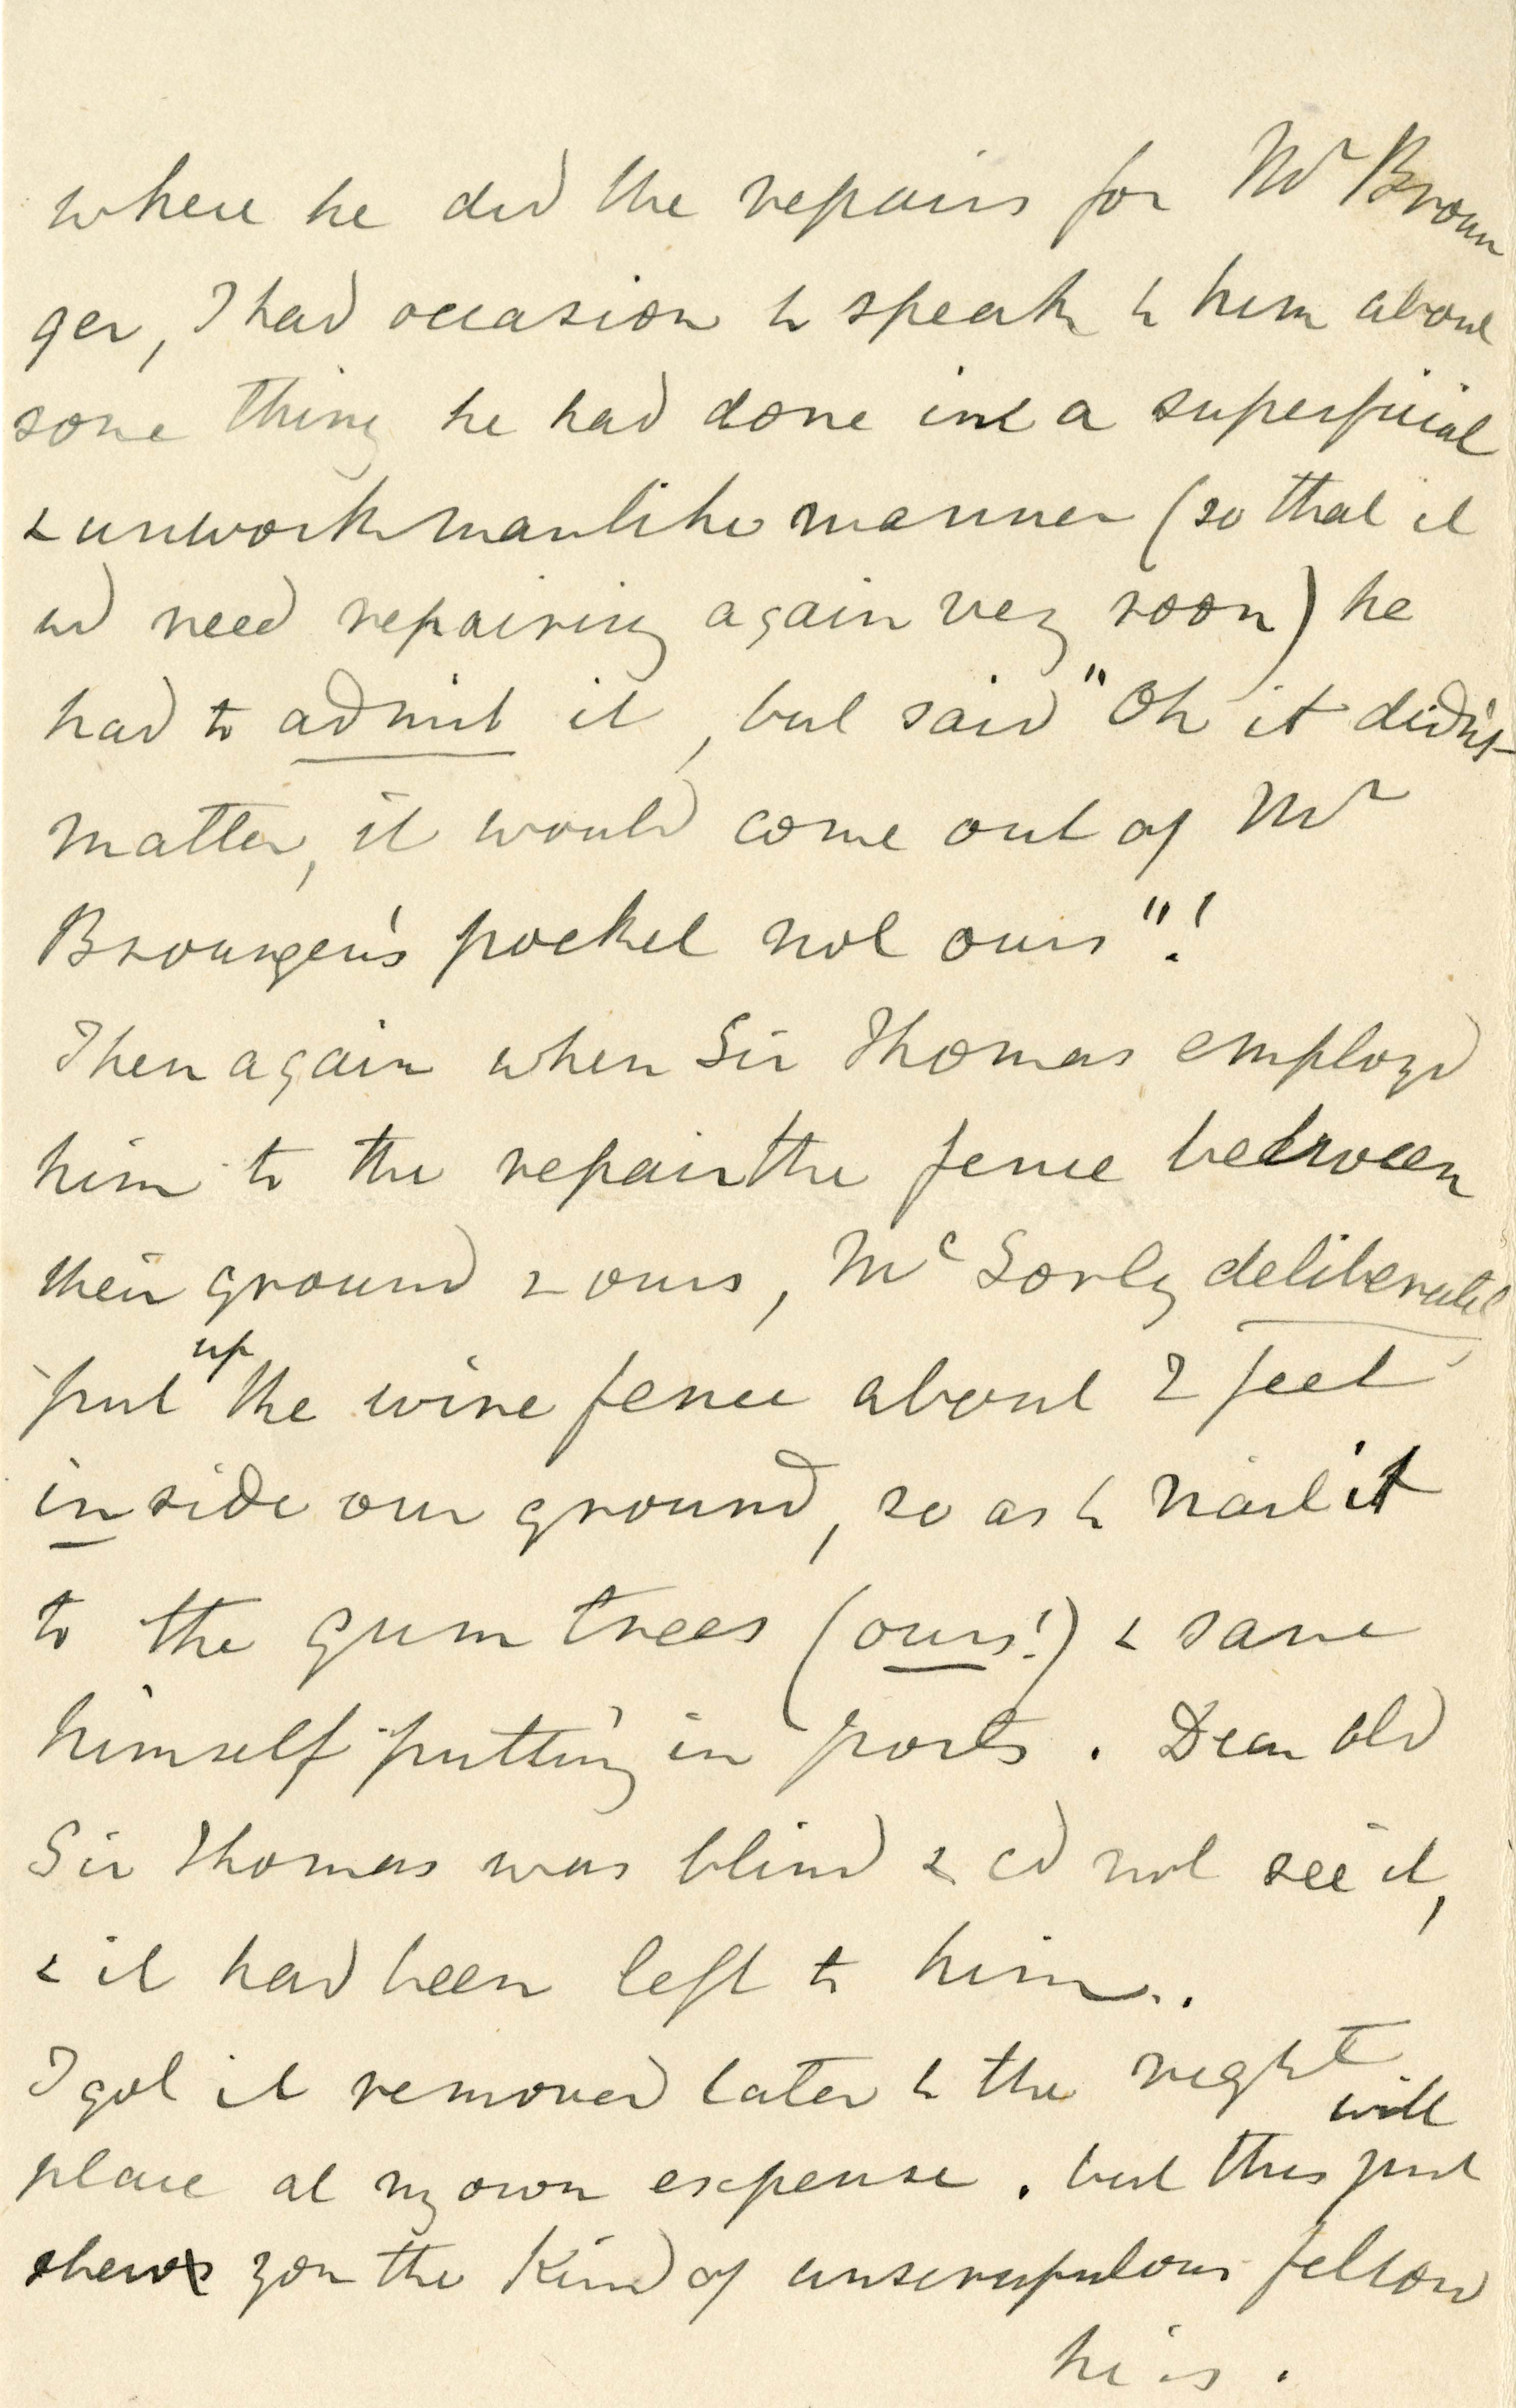 where he did the repairs for Mr Broun
ger, I had occasion to speak to him about
some thing he had done in a superficial
& unworkmanlike manner (so that it
wd need repairing again very soon) he
had to admit it, but said "Oh it didn't
matter, it would come out of Mr
Brounger's pocket not ours"!
Then again when Sir Thomas employd
him to the repair the fence between
their ground & ours, McSorly deliberatel
put up the wire fence about 2 feet
inside our ground, so as to nail it
to the gum trees (ours!) & save
himself putting in posts. Dear old
Sir Thomas was blind & cd not see it,
& it had been left to him..
I got it removed later to the right
place at my own expense. but this just will
shew you the kind of unscrupulous fellow
he is.